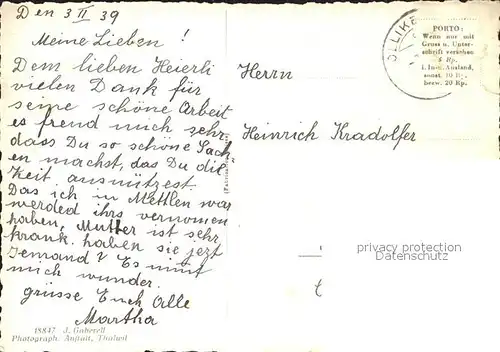 Den 3 II 39
Meine Lieben !
Dem lieben Heierli
vielen Dank für
seine schöne Arbeit
es freud mich sehr
dass Du so schöne Sach
en machst, das Du die
Zeit ausnützest.
Das ich in Mettlen war
werded ihr vernomen
haben, Mutter ist sehr
krank. haben sie jezt
Jemand? Es nimt
mich wunder.
grüsse Euch Alle
Martha
18847 J. Gaberell
Photograph. Anstalt, Thalwil
PORTO:
Wenn nur mit
Gruss u. Unter-
schrift versehen
5 Rp.
i. Inn. Ausland,
sonst. 10 Rp.
bezw. 20 Rp.
Herrn
Heinrich Kradolfer
privacy protection
Datenschutz